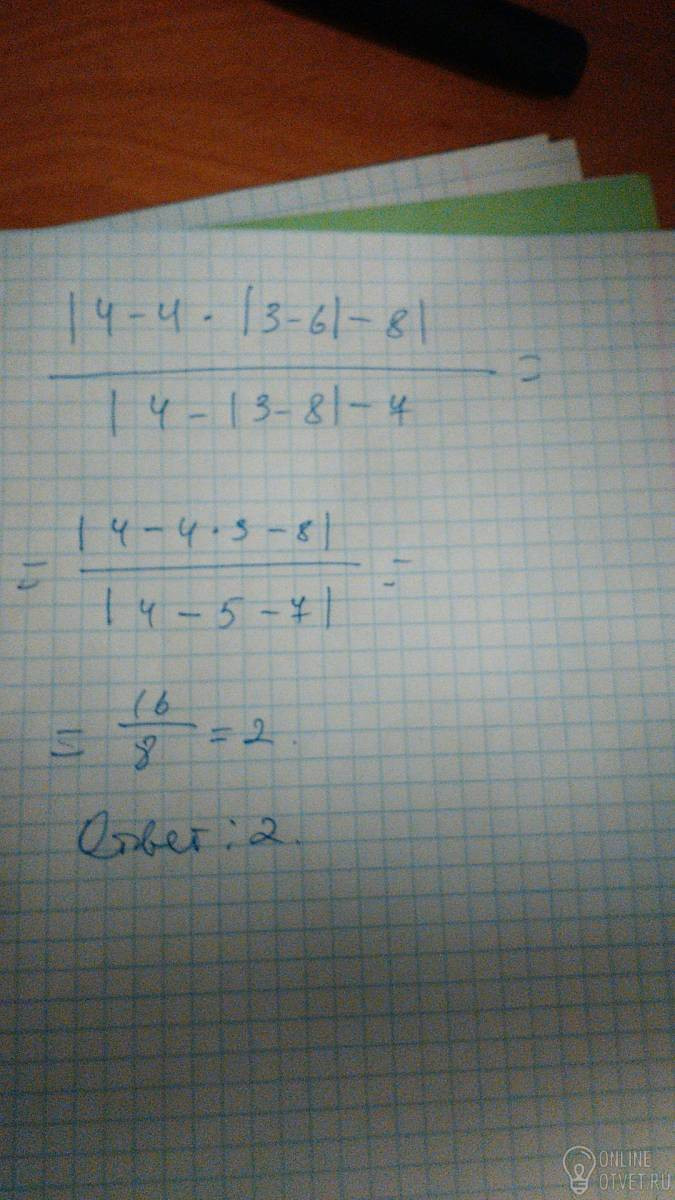 |4-4·|3-6|-8|
|4-|3-8|-7
=
= |4-4·3-8|
|4-5-7|
=
= 16
8
= 2.
Ответ: 2.
ONLINE
OTVET.RU